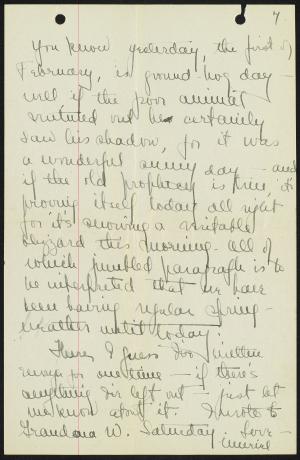 7
You know yesterday, the first of
February, is ground-hog day -
well if the poor animal
ventured out he certainly
saw his shadow, for it was
a wonderful sunny day - and
if the old prophecy is true, it's
proving itself today all right
for it's snowing a veritable
blizzard this morning - all of
which jumbled paragraph is to
be interpreted that we have
been having regular spring -
weather until today.
There, I guess I've written
enough for one time - if there's
anything I've left out - just let
me know about it. I wrote to
Grandma W. Saturday. Love -
Muriel